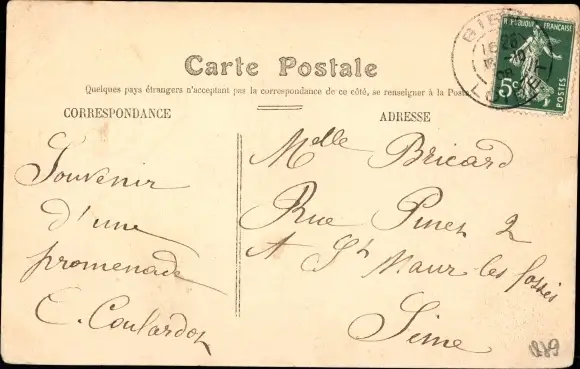 Carte Postale
Quelques pays étrangers n'acceptant pas la correspondance de ce côté, se renseigner à la Poste
CORRESPONDANCE
ADRESSE
RÉPUBLIQUE FRANÇAISE
5c
POSTES
Souvenir
d'une
promenade
Melle Bricard
Rue Pinet 2
A St Maur les fossés
Seine